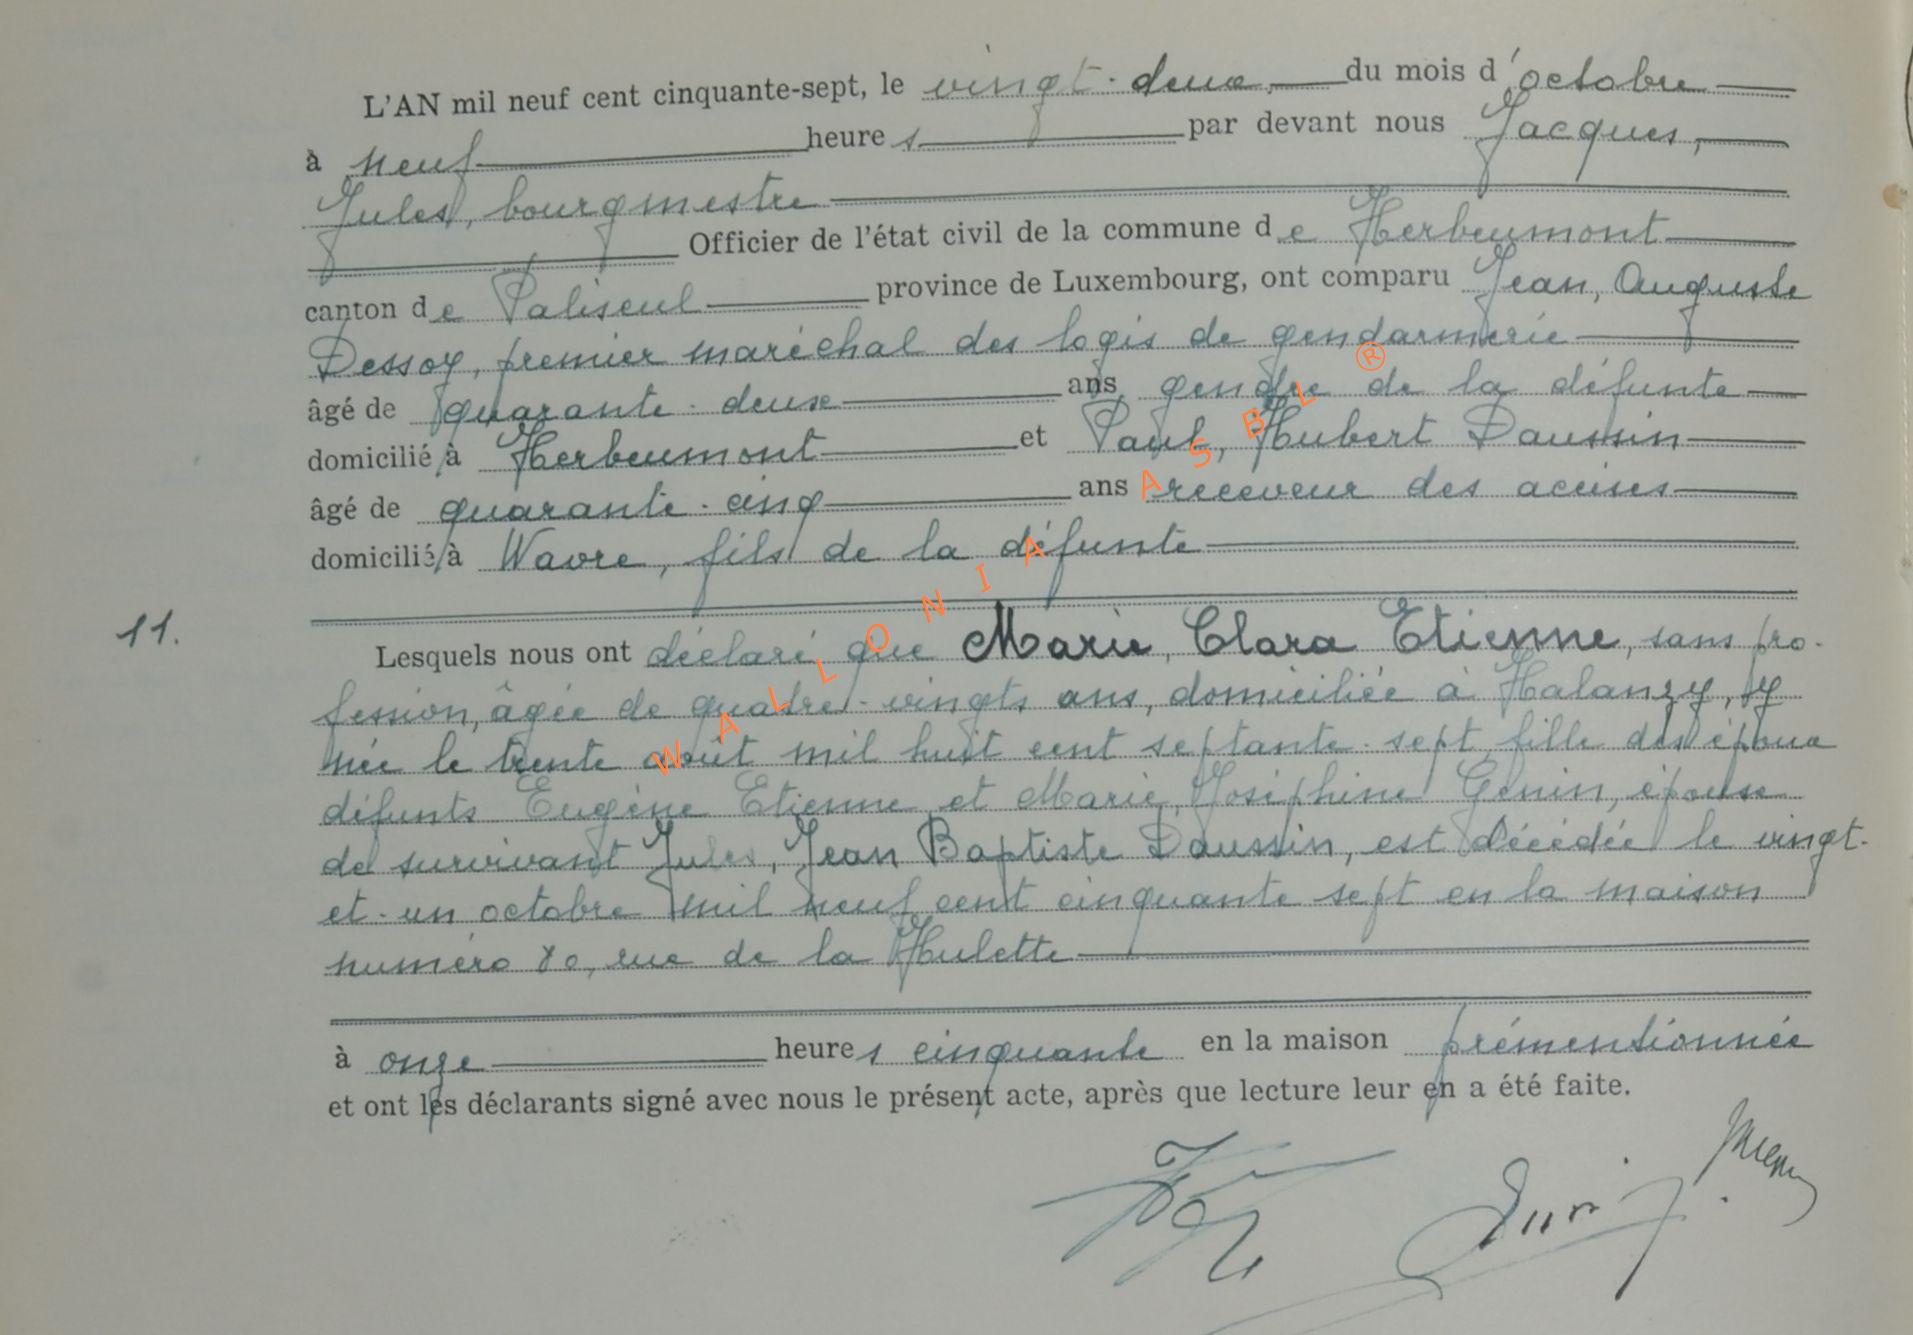 L'AN mil neuf cent cinquante-sept, le vingt-deux du mois d'octobre
à neuf heures par devant nous Jacques,
Jules, bourgmestre
Officier de l'état civil de la commune de Herbeumont
canton de Paliseul province de Luxembourg, ont comparu Jean, Auguste
Dessoy, premier maréchal des logis de gendarmerie
âgé de quarante-deux ans gendre de la défunte
domicilié à Herbeumont et Paul, Hubert Daussin
âgé de quarante-cinq ans receveur des accises
domicilié à Wavre, fils de la défunte
11.
Lesquels nous ont déclaré que Marie, Clara Etienne, sans pro-
fession, âgée de quatre-vingts ans, domiciliée à Halanzy, y
née le trente août mil huit cent septante-sept, fille des époux
défunts Eugène Etienne et Marie, Joséphine Génin, épouse
de survivant Jules, Jean Baptiste Daussin, est décédée le vingt-
et-un octobre mil neuf cent cinquante sept en la maison
numéro 80, rue de la Hulette
à onze heures cinquante en la maison prémentionnée
et ont les déclarants signé avec nous le présent acte, après que lecture leur en a été faite.
WALLONIA ASBL ®